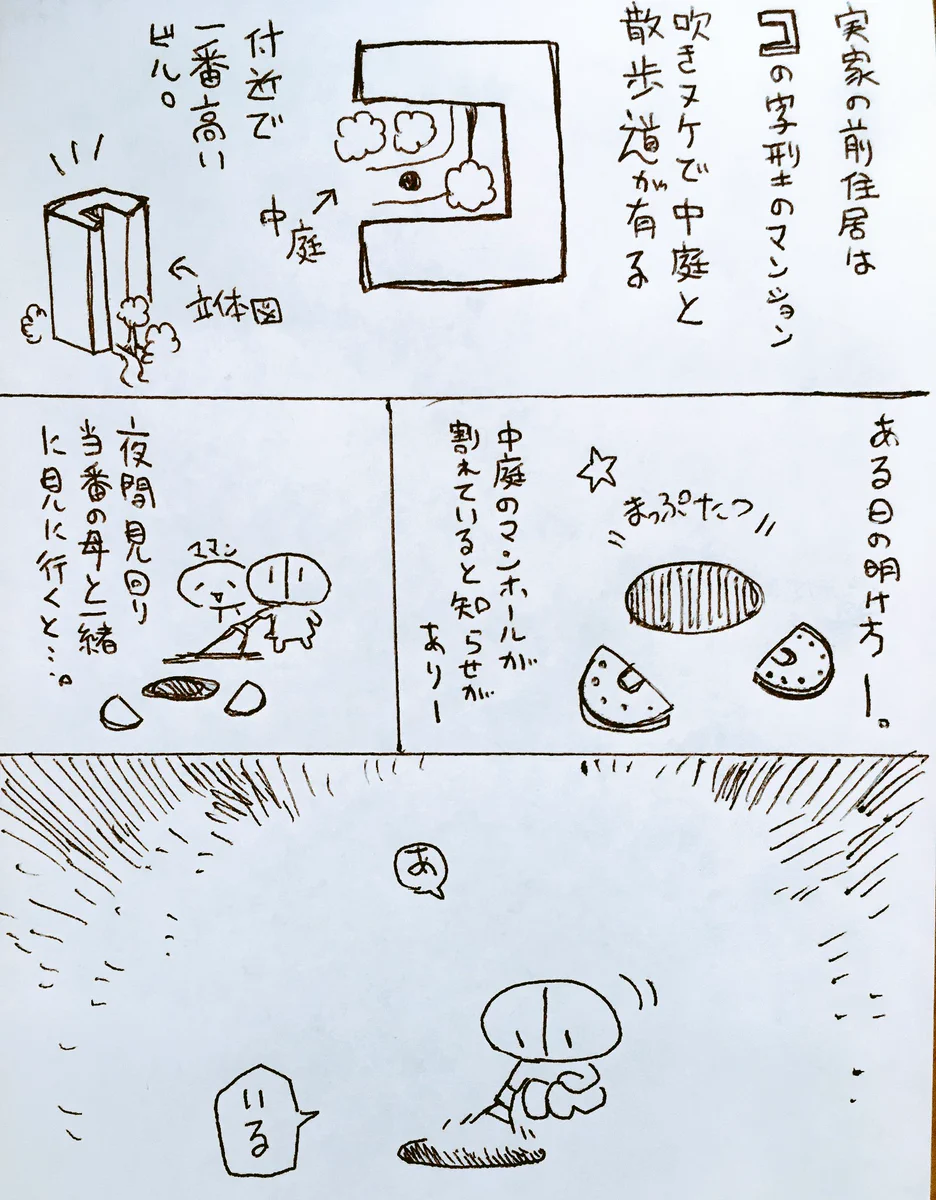 実家の前住居は
コの字型のマンション
吹きヌケで中庭と
散歩道が有る
中庭
付近で
一番高い
ビル。
立体図
ある日の明け方ー。
まっぷたつ
中庭のマンホールが
割れていると知らせが
ありー
ママン
夜間見回り
当番の母と一緒
に見に行くと…。
あ
いる